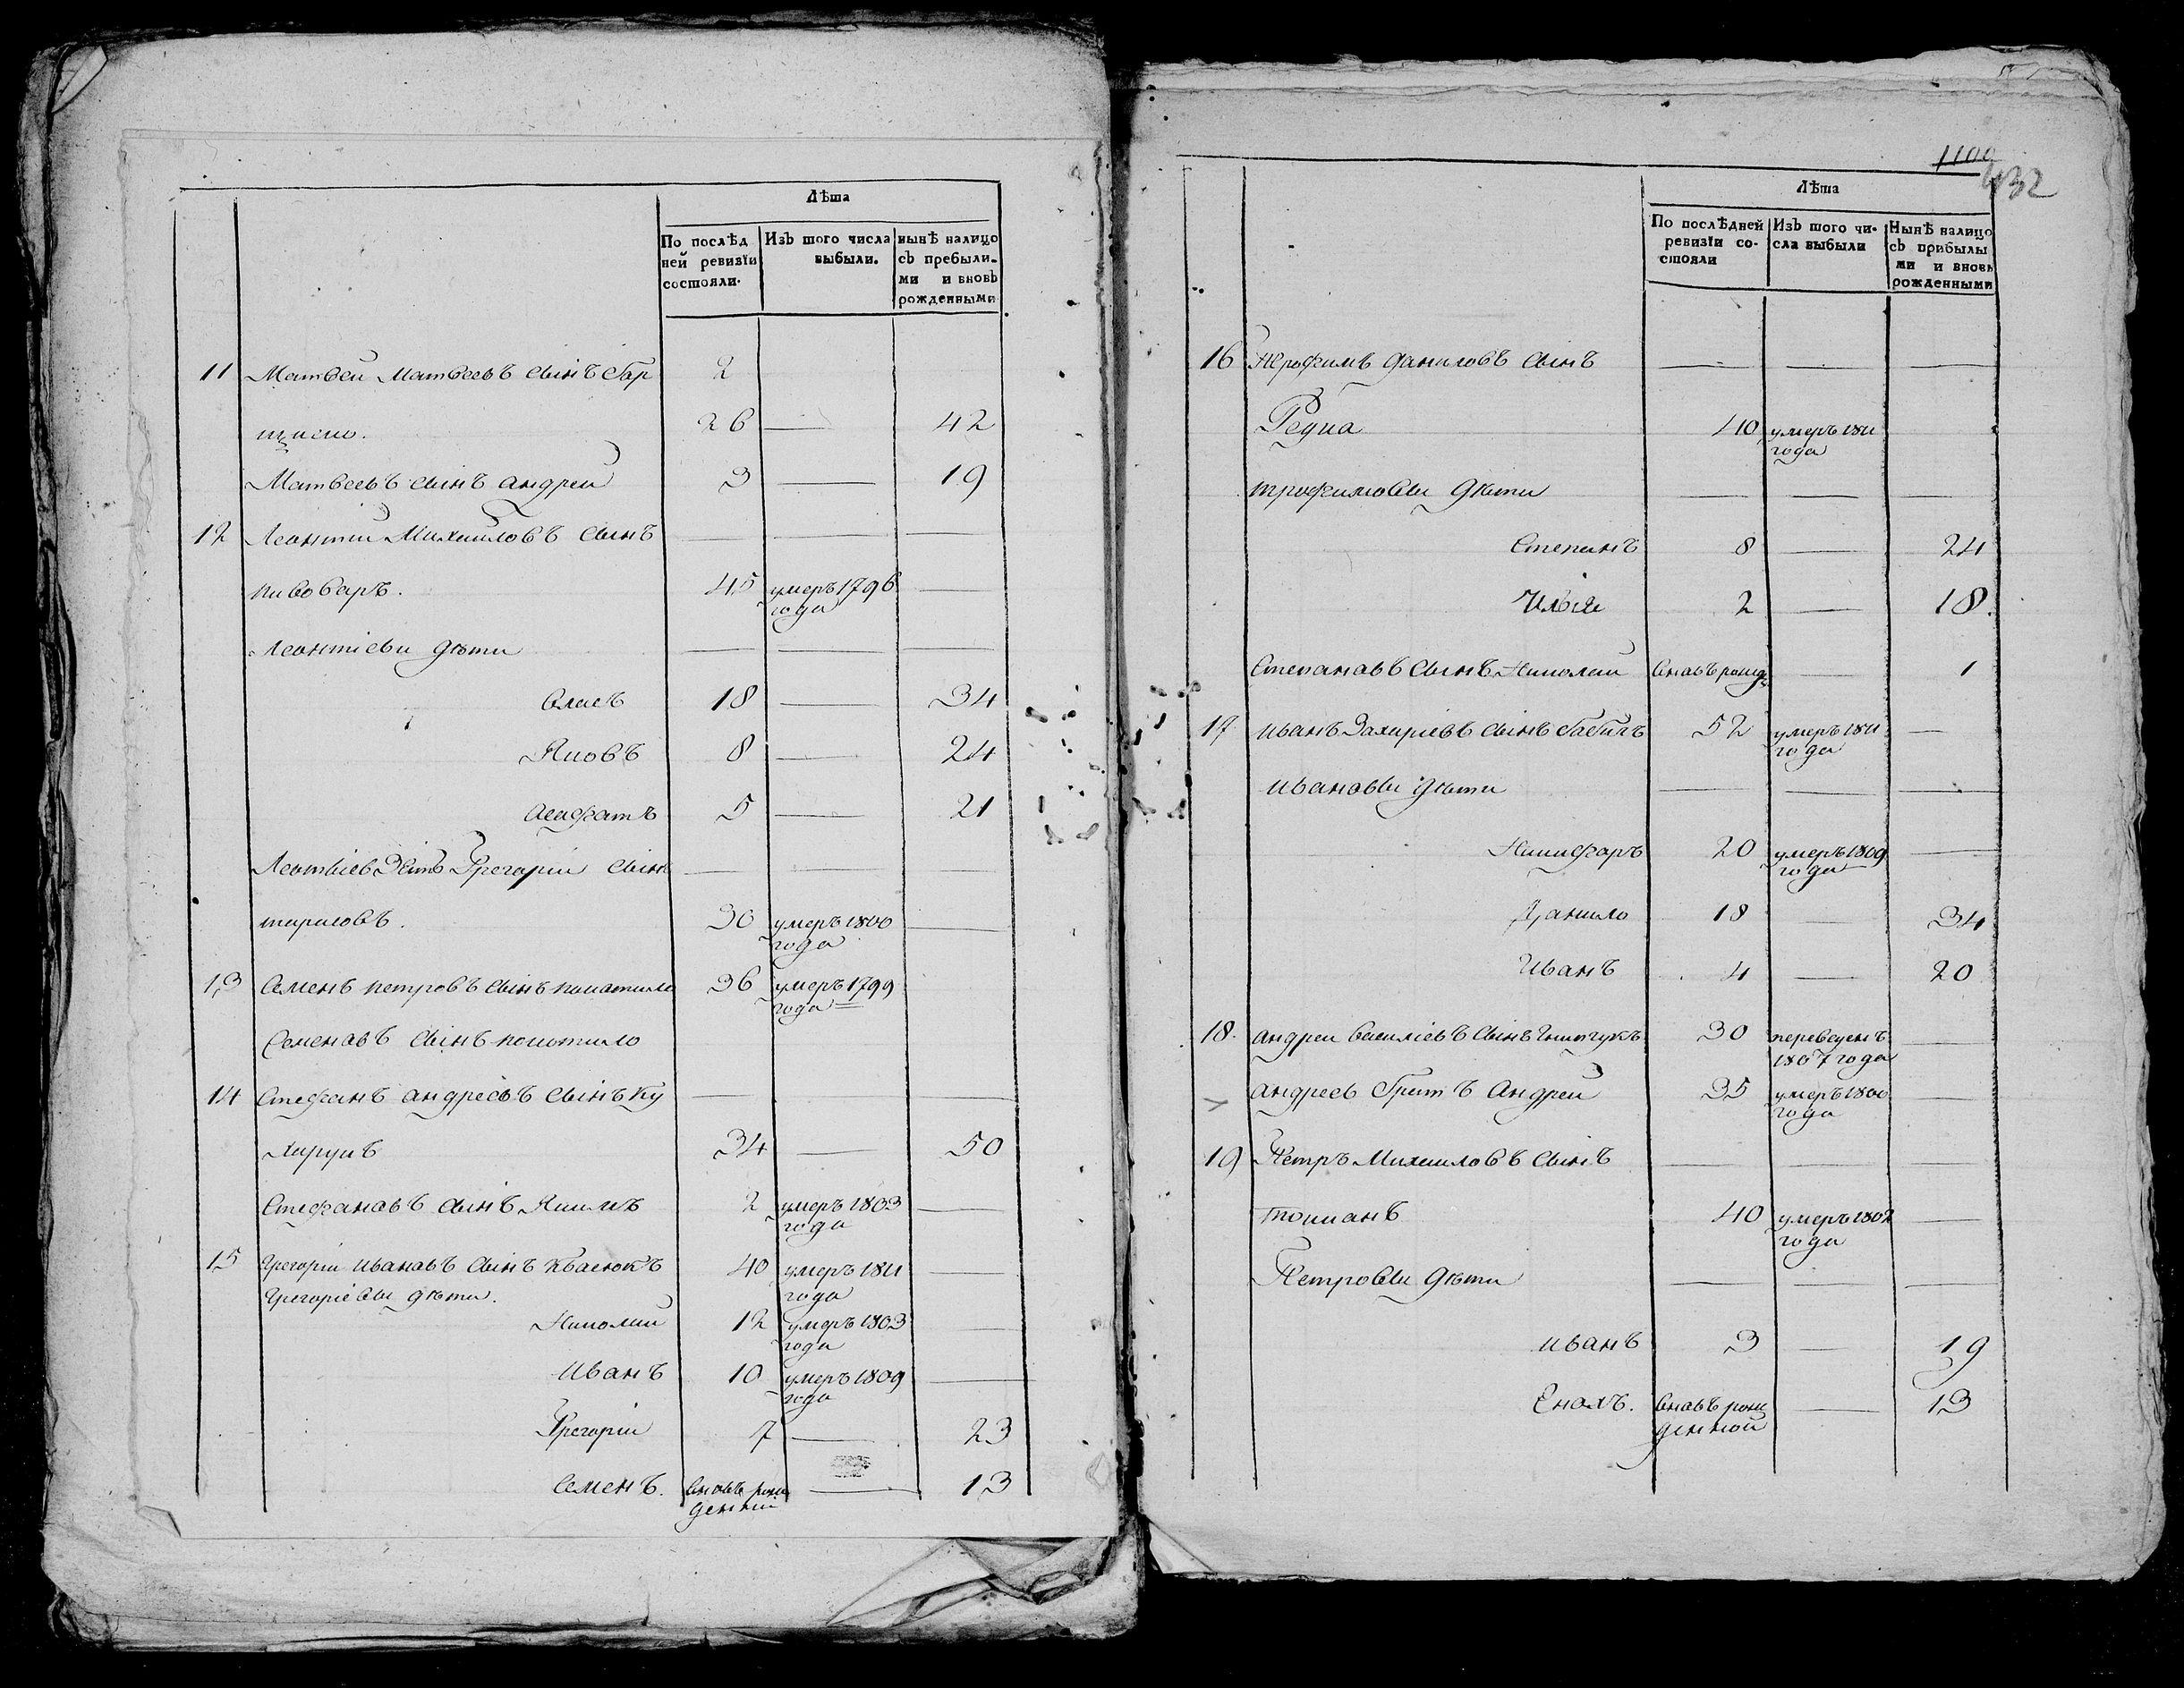 Лѣта
По послѣд
ней ревизїи
состояли.
Изъ того числа
выбыли.
нынѣ налицо
съ пребыли-
ми и вновь
рожденными
11 Матвей Матвеевъ сынъ 2
26 — 42
Матвеевъ сынъ андрей 3 — 19
12 Леонтий Михайловъ сынъ — — —
пивоваръ. 45 умеръ 1796 —
года
Леонтіеви дѣти — — —
власъ 18 — 34
Яковъ 8 — 24
асафатъ 5 — 21
Грегорій сынъ — — —
тарасовъ. 30 умеръ 1800 —
года
13 Семенъ петровъ сынъ копотило 36 умеръ 1799
года
Семеновъ сынъ копотило
14 Стефанъ андреевъ сынъ Ку — —
харукъ 34 — 50
Стефановъ сынъ Якимъ 2 умеръ 1803 —
года
15 Грегорій ивановъ сынъ квасюкъ 40 умеръ 1811 —
Грегоріевы дѣти. года
Николай 12 умеръ 1803 —
года
Иванъ 10 умеръ 1809 —
года
Грегорій 7 — 23
Семенъ. вновь рож — 13
денній
1100
432
Лѣта
По послѣдней
ревизїи со-
стояли
Изъ того чи-
сла выбыли
Нынѣ налицо
съ прибылы
ми и вновь
рожденными
16 Трофимъ даниловъ сынъ — — —
Редка 40 умеръ 1811
года
трофимовы дѣти — — —
Степанъ 8 — 24
Илья 2 — 18.
Степановъ сынъ Николай вновь рожд — 1
17 иванъ Захаріевъ сынъ бабичъ 52 умеръ 1811 —
года
ивановы дѣти — — —
Никифоръ 20 умеръ 1809 —
года
Данило 18 — 34
Иванъ 4 — 20
18. андрей василіевъ сынъ 30 переведенъ —
1807 года
андреевъ братъ Андрей 35 умеръ 1800 —
года
19 Петръ Михайловъ сынъ — — —
токманъ 40 умеръ 1802 —
года
Петровы дѣти — — —
иванъ 3 — 19
Енохъ. вновь рож — 13
денной